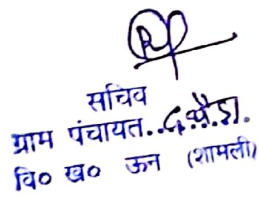 सचिव
ग्राम पंचायत..
वि० ख० ऊन (शामली)